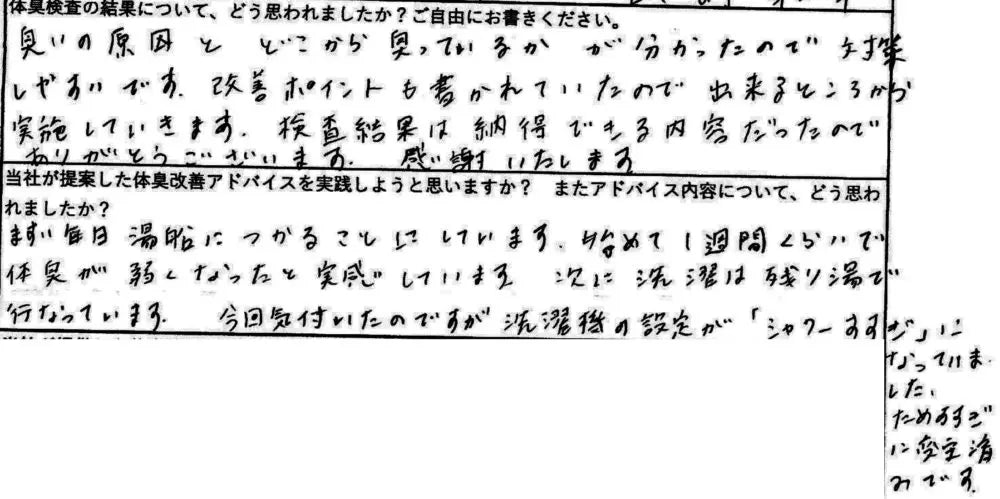 体臭検査の結果について、どう思われましたか？ご自由にお書きください。
臭いの原因と どこから臭っているか が分かったので対策
しやすいです。改善ポイントも書かれていたので出来るところから
実施していきます。検査結果は納得できる内容だったので
ありがとうございます。 感謝いたします
当社が提案した体臭改善アドバイスを実践しようと思いますか？ またアドバイス内容について、どう思わ
れましたか？
まずは毎日湯船につかることにしています。始めて1週間くらいで
体臭が弱くなったと実感しています 次に洗濯は残り湯で
行なっています。 今回気付いたのですが洗濯機の設定が「シャワーすすぎ」に
なっていま
した、
ためすすぎ
に変更済
みです。